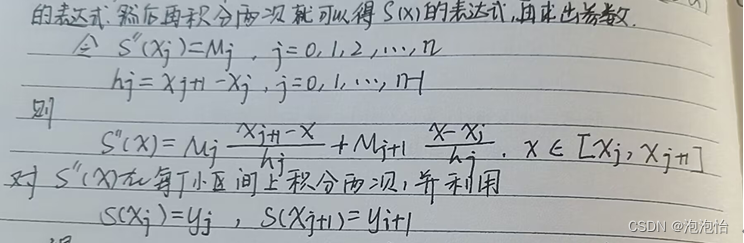 的表达式.然后再积分两次就可以得S(x)的表达式,再求出参数.
令 S''(xj)=Mj , j=0,1,2,…,n
hj=xj+1-xj, j=0,1,…,n-1
则
S''(x)=Mj (xj+1-x)/hj + Mj+1 (x-xj)/hj . x∈[xj,xj+1]
对 S''(x)在每个小区间上积分两次,并利用
S(xj)=yj , S(xj+1)=yj+1
CSDN @泡泡怡